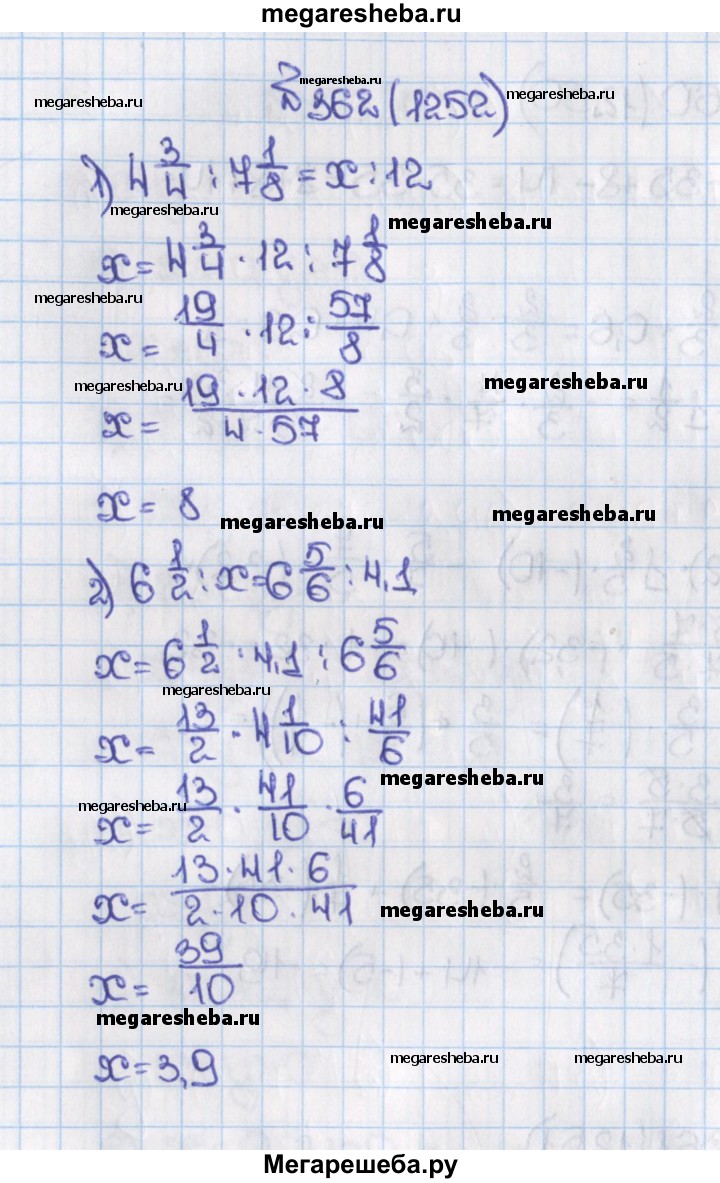 megaresheba.ru
№ 362 (1252)
megaresheba.ru megaresheba.ru megaresheba.ru
1) 4 3/4 : 7 1/8 = x : 12
megaresheba.ru megaresheba.ru
x = 4 3/4 · 12 : 7 1/8
megaresheba.ru
x = 19/4 · 12 : 57/8
megaresheba.ru megaresheba.ru
x = 19 · 12 · 8 / 4 · 57
x = 8
megaresheba.ru megaresheba.ru
2) 6 1/2 : x = 6 5/6 : 4,1
x = 6 1/2 · 4,1 : 6 5/6
megaresheba.ru
x = 13/2 · 4 1/10 : 41/6
megaresheba.ru
megaresheba.ru
x = 13/2 · 41/10 · 6/41
x = 13 · 41 · 6 / 2 · 10 · 41
megaresheba.ru
x = 39/10
megaresheba.ru
x = 3,9
megaresheba.ru megaresheba.ru
Мегарешеба.ру